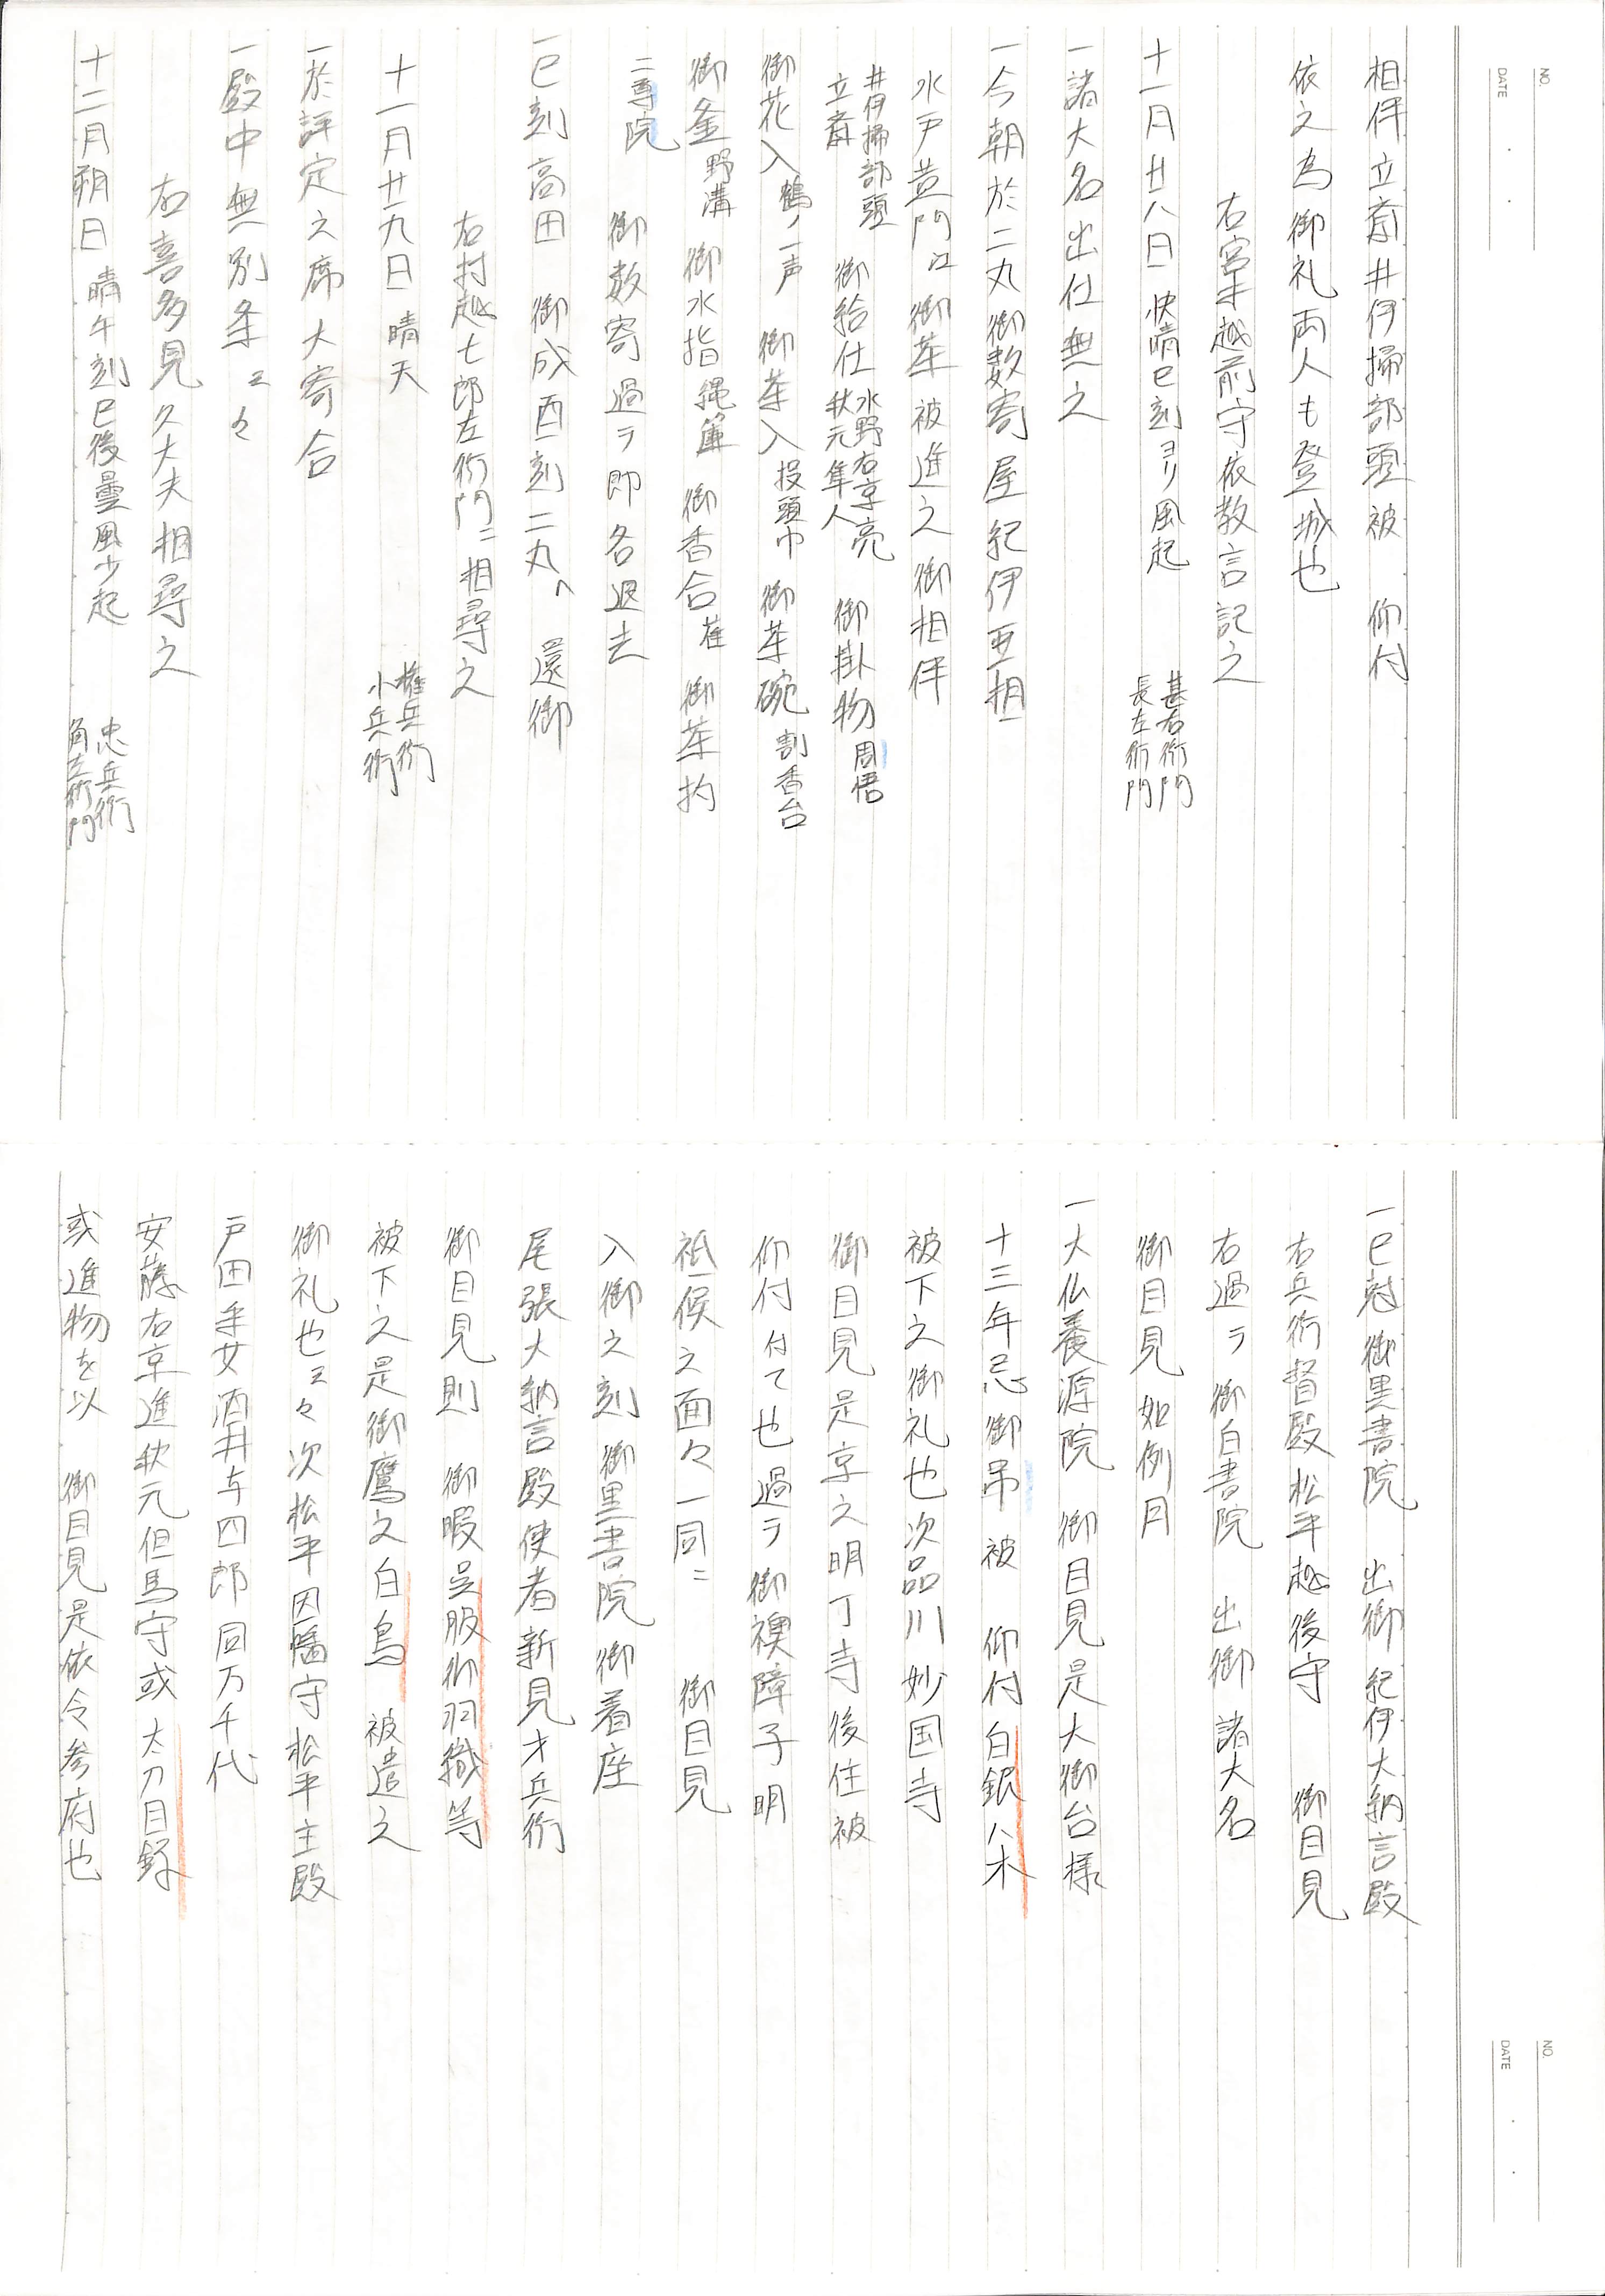 NO.
DATE
相伴立斎井伊掃部頭被 仰付
依之為御礼両人も登城也
右宮本越前守依教言記之
十一月廿八日 快晴巳刻ヨリ風起 甚右衛門 長左衛門
一諸大名出仕無之
一今朝於二丸御数寄屋紀伊亜相
水戸黄門江御茶被進之御相伴
井伊掃部頭 立斎 御給仕 水野右京亮 秋元隼人 御掛物 周悟
御花入 鶴ノ一声 御茶入 投頭巾 御茶碗 割香台
御釜 野溝 御水指 縄簾 御香合 蓮 御茶杓
二尊院 御数寄過テ即各退去
一巳刻高田 御成酉刻二丸へ 還御
右村越七郎左衛門ニ相尋之
十一月廿九日 晴天 権兵衛 小兵衛
一於評定之席大寄合
一殿中無別条云々
右喜多見久大夫相尋之
十二月朔日 晴午刻巳後曇風少起 忠兵衛 角左衛門
NO.
DATE
一巳尅御黒書院 出御紀伊大納言殿
右兵衛督殿松平越後守 御目見
右過テ御白書院 出御諸大名
御目見如例月
一大仏養源院 御目見是大御台様
十三年忌御吊被 仰付白銀八木
被下之御礼也次品川妙国寺
御目見是京之明丁寺後住被
仰付付て也過テ御襖障子明
祗候之面々一同ニ 御目見
入御之刻御黒書院御着座
尾張大納言殿使者新見才兵衛
御目見則 御暇呉服御羽織等
被下之是御鷹之白鳥 被遣之
御礼也云々次松平因幡守松平主殿
戸田采女酒井与四郎同万千代
安藤右京進秋元但馬守或太刀目録
或進物を以 御目見是依令参府也